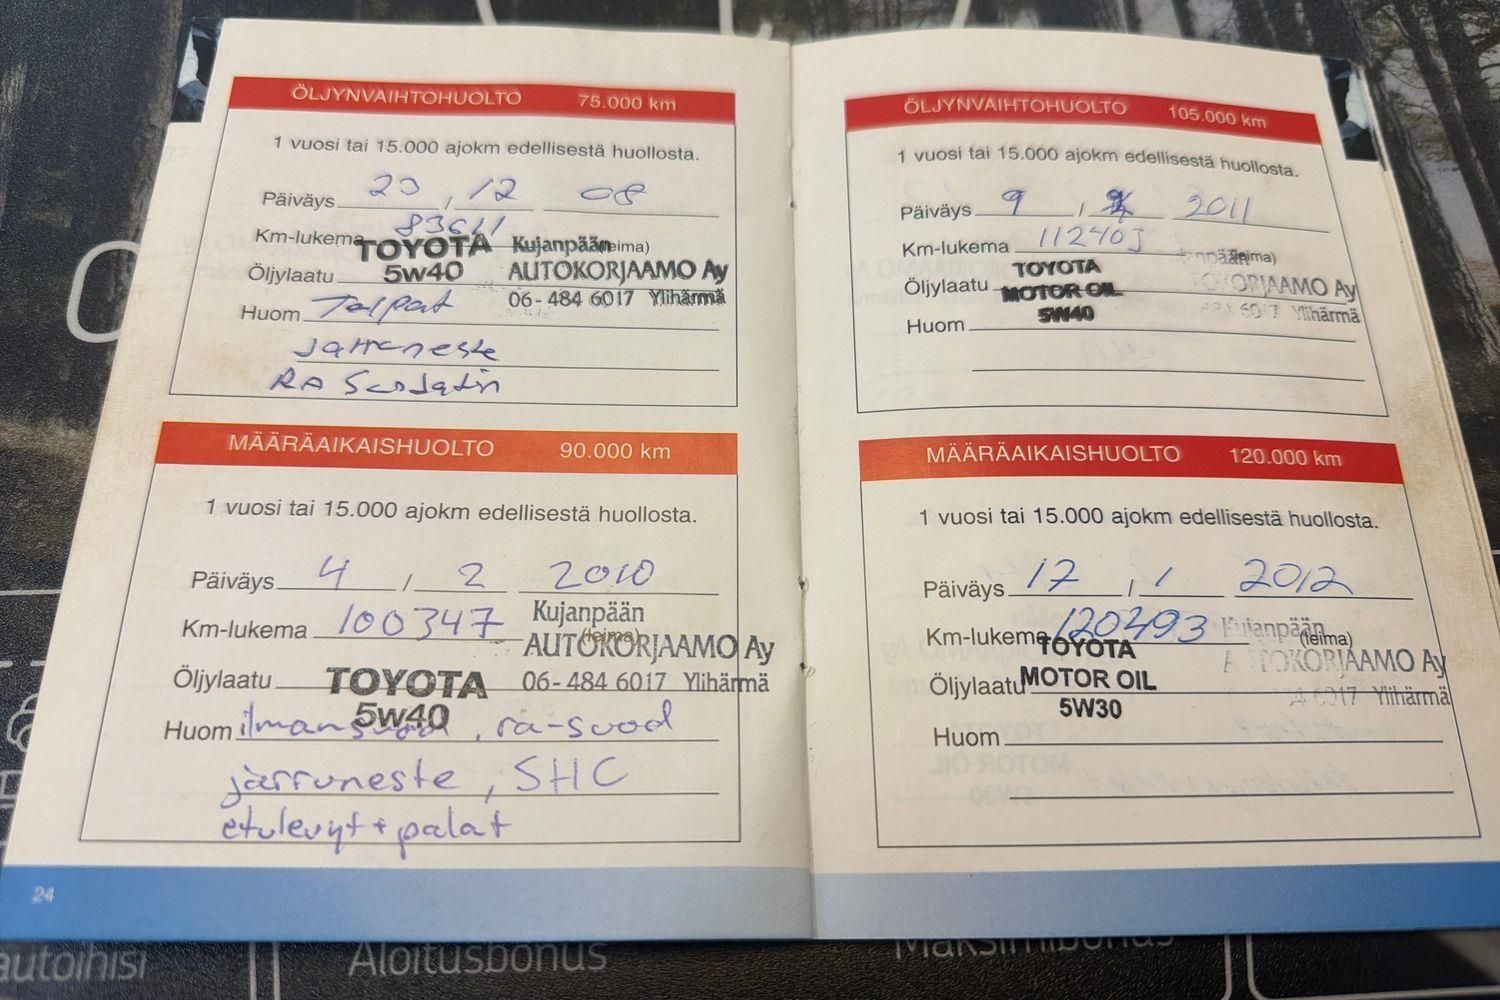 ÖLJYNVAIHTOHUOLTO 75.000 km
1 vuosi tai 15.000 ajokm edellisestä huollosta.
Päiväys 23 / 12 08
Km-lukema 83611
TOYOTA Kujanpään (leima)
Öljylaatu 5W40 AUTOKORJAAMO Ay
06-484 6017 Ylihärmä
Huom
Jarruneste
MÄÄRÄAIKAISHUOLTO 90.000 km
1 vuosi tai 15.000 ajokm edellisestä huollosta.
Päiväys 4 / 2 2010
Km-lukema 100347 Kujanpään
(leima)
AUTOKORJAAMO Ay
Öljylaatu TOYOTA 06-484 6017 Ylihärmä
5W40
Huom ilmansuod, ra-suod
jarruneste, SHC
etulevyt + palat
24
ÖLJYNVAIHTOHUOLTO 105.000 km
1 vuosi tai 15.000 ajokm edellisestä huollosta.
Päiväys 9 / 2011
Km-lukema 112403
(leima)
Öljylaatu TOYOTA
MOTOR OIL
5W40
ORJAAMO Ay
6017 Ylihärmä
Huom
MÄÄRÄAIKAISHUOLTO 120.000 km
1 vuosi tai 15.000 ajokm edellisestä huollosta.
Päiväys 17 / 1 2012
Km-lukema 120493 Kujanpään
(leima)
TOYOTA
TOKORJAAMO Ay
Öljylaatu MOTOR OIL
5W30
6017 Ylihärmä
Huom
autoihisi
Aloitusbonus
Maksimibonus